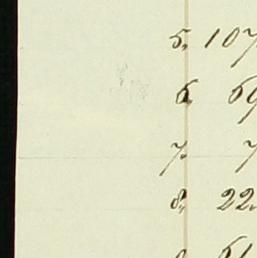 5. 107
6. 69
7. 7
8. 22.
61